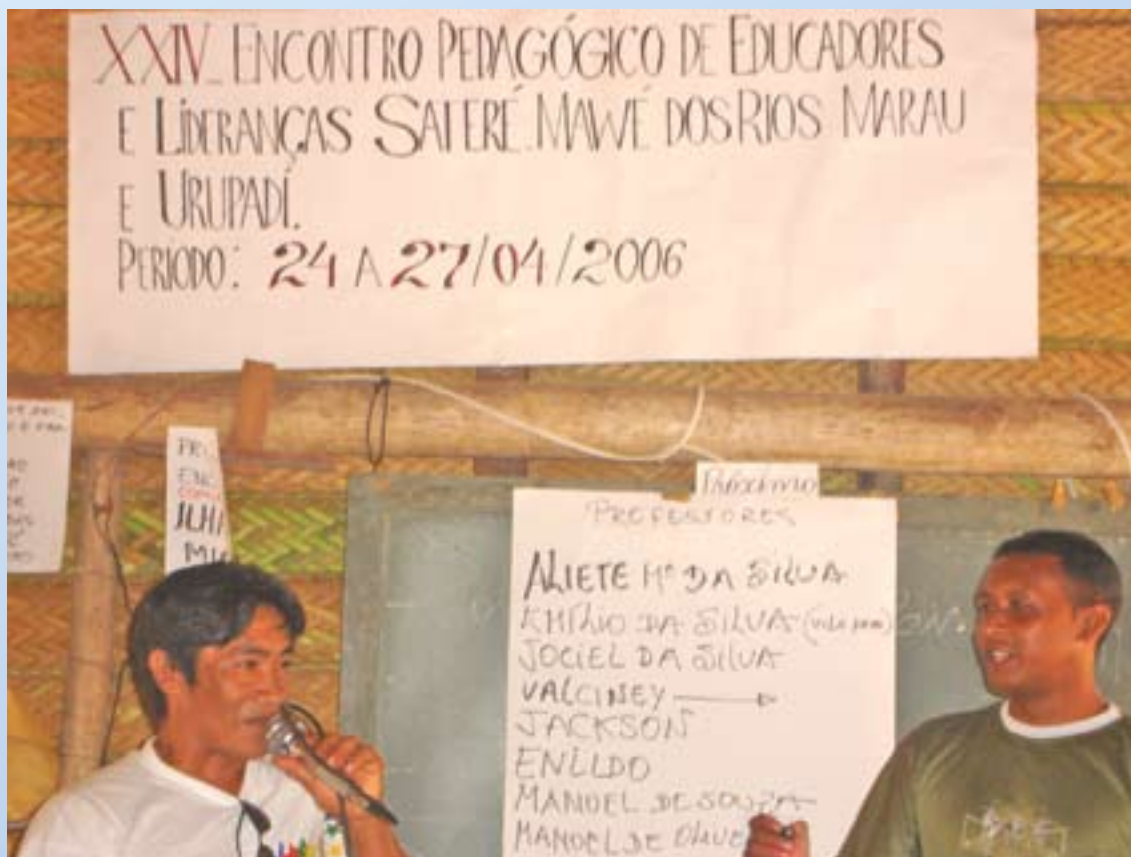 XXIV_ ENCONTRO PEDAGÓGICO DE EDUCADORES
E LIDERANÇAS SATERÉ.MAWÉ DOS RIOS MARAU
E URUPADÍ.
PERIODO: 24 A 27/04/2006
PRI
ENC
JLHI
MIC
Próximo
PROFESSORES
ALIETE Mª DA SILVA
EMÍLIO DA SILVA
JOCIEL DA SILVA
VALCINEY
JACKSON
ENILDO
MANOEL DE SOUZA
MANOEL DE OLIVE